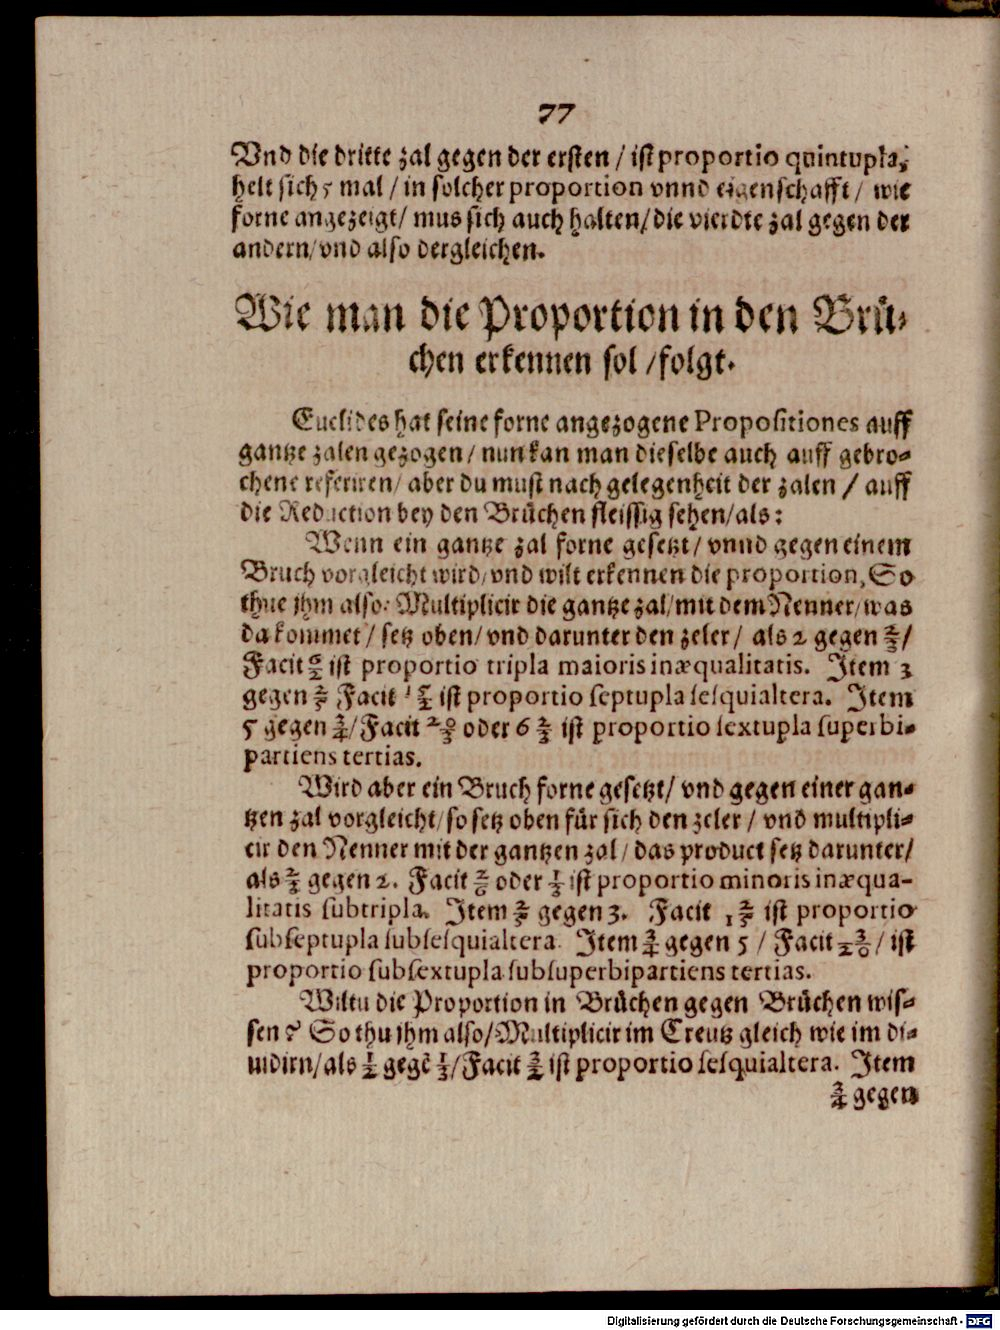 77
Vnd die dritte zal gegen der ersten / ist proportio quintupla,
helt sich 5 mal / in solcher proportion vnnd eigenschafft / wie
forne angezeigt / mus sich auch halten / die vierdte zal gegen der
andern / vnd also dergleichen.
Wie man die Proportion in den Brü-
chen erkennen sol / folgt.
Euclides hat seine forne angezogene Propositiones auff
gantze zalen gezogen / nun kan man dieselbe auch auff gebro-
chene referiren / aber du must nach gelegenheit der zalen / auff
die Reduction bey den Brüchen fleissig sehen / als:
Wenn ein gantze zal forne gesetzt / vnnd gegen einem
Bruch vorgleicht wird / vnd wilt erkennen die proportion, So
thue jhm also: Multiplicir die gantze zal / mit dem Nenner / was
da kommet / setz oben / vnd darunter den zeler / als 2 gegen 2/3 /
Facit 6/2 ist proportio tripla maioris inæqualitatis. Item 3
gegen 2/5 Facit 15/2 ist proportio septupla sesquialtera. Item
5 gegen 3/4 / Facit 20/3 oder 6 2/3 ist proportio sextupla superbi-
partiens tertias.
Wird aber ein Bruch forne gesetzt / vnd gegen einer gan-
tzen zal vorgleicht / so setz oben für sich den zeler / vnd multipli-
cir den Nenner mit der gantzen zal / das product setz darunter /
als 2/3 gegen 2. Facit 2/6 oder 1/3 ist proportio minoris inæqua-
litatis subtripla. Item 2/5 gegen 3. Facit 2/15 ist proportio
subseptupla subsesquialtera. Item 3/4 gegen 5 / Facit 3/20 / ist
proportio subsextupla subsuperbipartiens tertias.
Wiltu die Proportion in Brüchen gegen Brüchen wis-
sen? So thu jhm also / Multiplicir im Creutz gleich wie im di-
uidirn / als 1/2 gegē 1/3 / Facit 3/2 ist proportio sesquialtera. Item
3/4 gegen
Digitalisierung gefördert durch die Deutsche Forschungsgemeinschaft - DFG